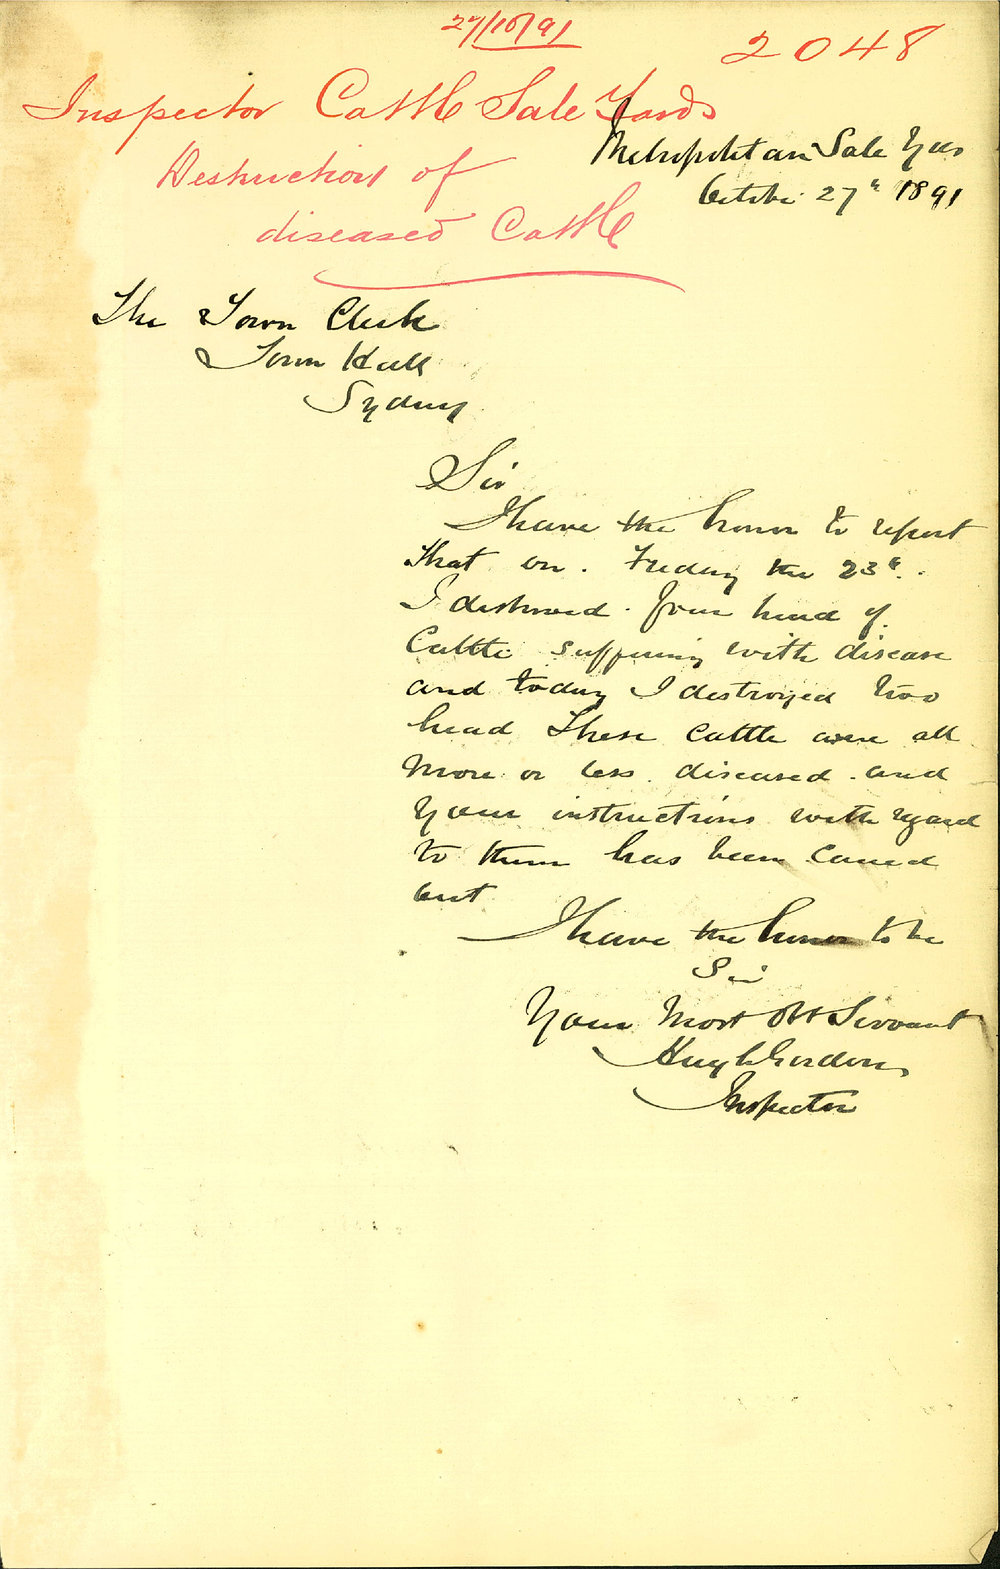 27/10/91
2048
Inspector Cattle Sale Yards
Destruction of
diseased Cattle
Metropolitan Sale Yds
October 27th 1891
The Town Clerk
Town Hall
Sydney
Sir
I have the honor to report
that on Friday the 23rd
I destroyed four head of
Cattle suffering with disease
and today I destroyed two
head These Cattle were all
more or less diseased and
your instructions with regard
to them has been carried
out
I have the honor to be
Sir
Your Most Obt Servant
Hugh Gordon
Inspector